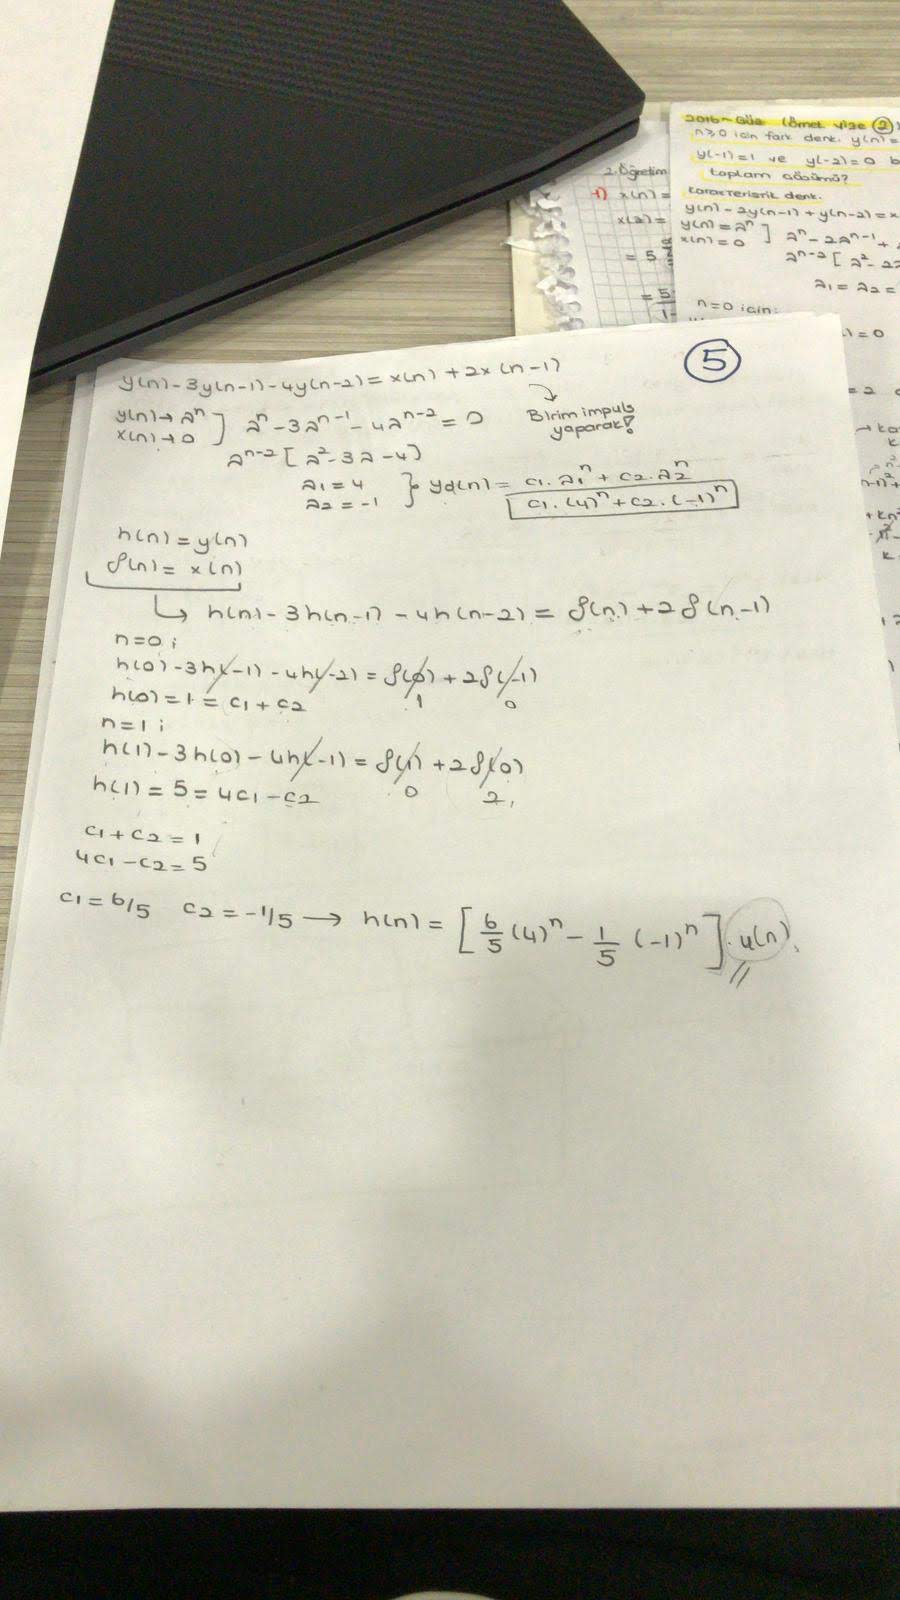 2016-Güz (Örnek Vize 2)
n≥0 için fark denk. y(n)=
y(-1)=1 ve y(-2)=0
toplam çözümü?
Karakteristik denk.
y(n)-2y(n-1)+y(n-2)=x
y(n)=λⁿ
x(n)=0 ] λⁿ-2λⁿ⁻¹+
λⁿ⁻²[λ²-2λ
λ1=λ2=
n=0 için:
2. Öğretim
1) x(n)=
x(2)=
= 5
5
y(n)-3y(n-1)-4y(n-2)=x(n)+2x(n-1)
5
Birim impuls
yaparak!
y(n)→λⁿ
x(n)→0 ] λⁿ-3λⁿ⁻¹-4λⁿ⁻²=0
λⁿ⁻²[λ²-3λ-4]
λ1=4
λ2=-1 } yd(n)=c1.λ1ⁿ+c2.λ2ⁿ
c1.(4)ⁿ+c2.(-1)ⁿ
h(n)=y(n)
δ(n)=x(n)
↳ h(n)-3h(n-1)-4h(n-2)=δ(n)+2δ(n-1)
n=0;
h(0)-3h(-1)-4h(-2)=δ(0)+2δ(-1)
1 0
h(0)=1=c1+c2
n=1;
h(1)-3h(0)-4h(-1)=δ(1)+2δ(0)
0 2
h(1)=5=4c1-c2
c1+c2=1
4c1-c2=5
c1=6/5 c2=-1/5 → h(n)=[6/5(4)ⁿ-1/5(-1)ⁿ].u(n)